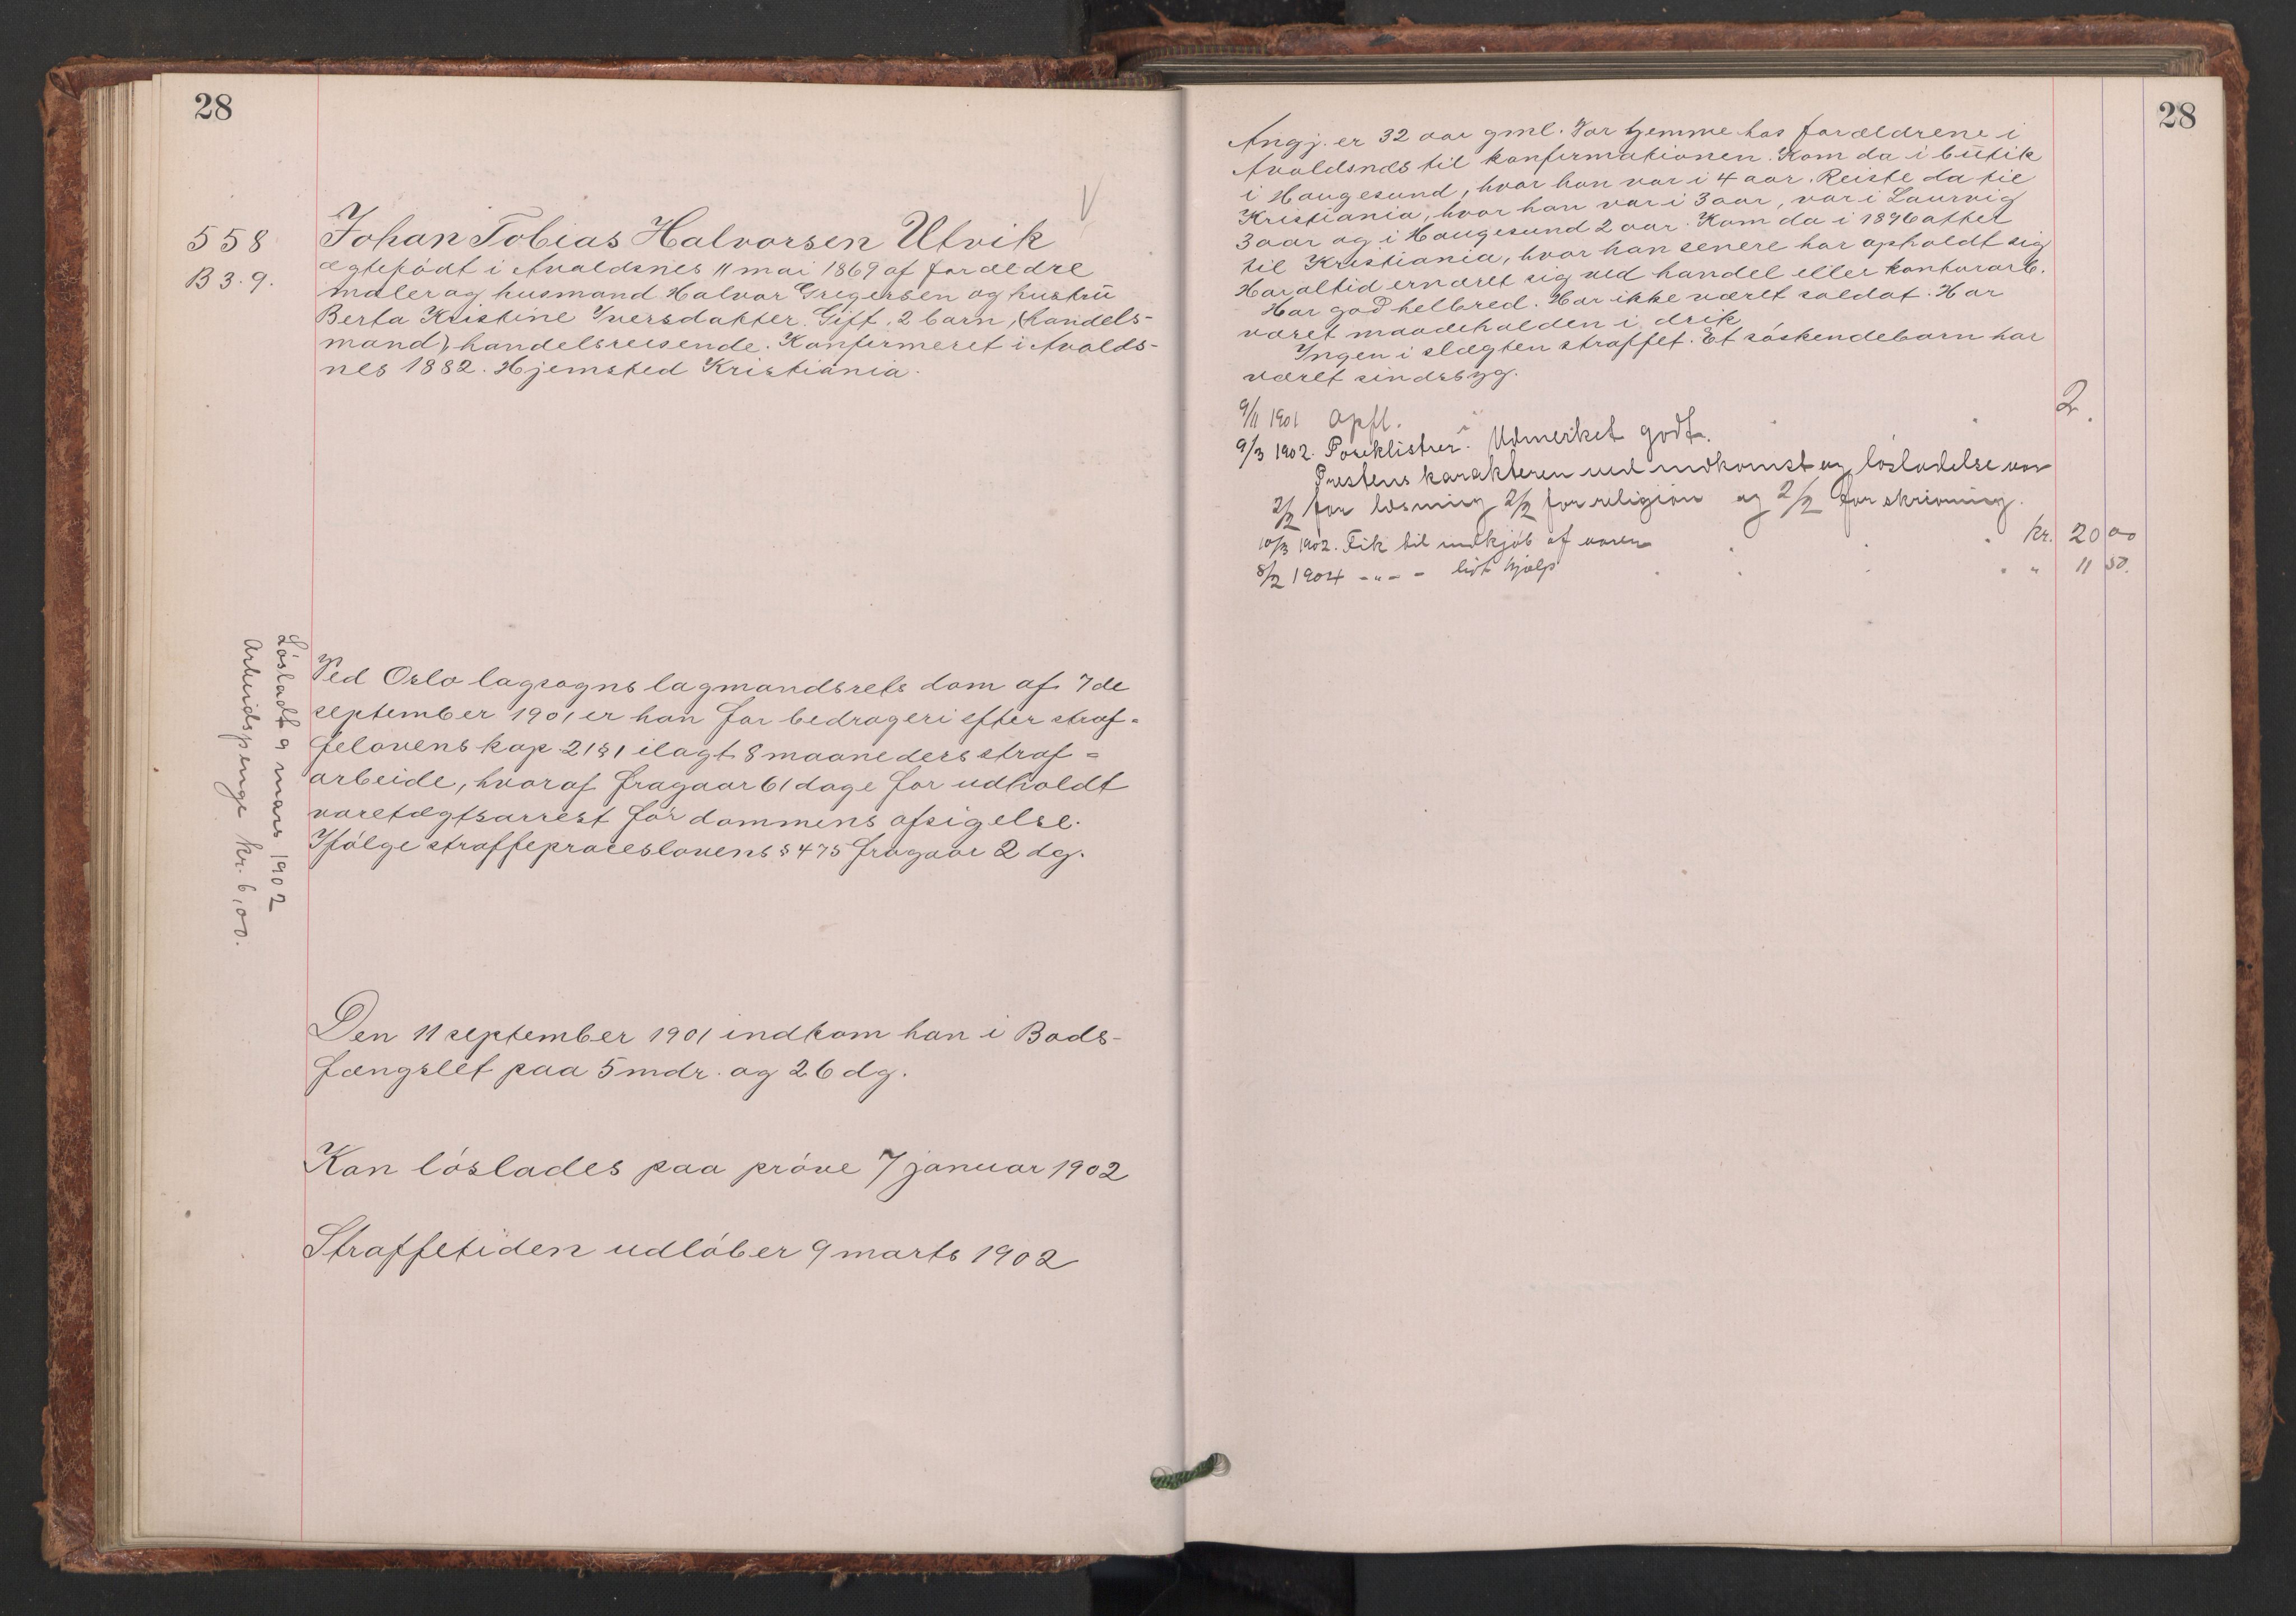 28
558
B 3. 9.
Johan Tobias Halvorsen Utvik
ægtefödt i Avaldsnes 11 mai 1869 af forældre
maler og husmand Halvor Gregersen og hustrü
Berta Kristine Iversdatter. Gift, 2 barn, (handels-
mand) handelsreisende. Konfirmeret i Avalds-
nes 1882. Hjemsted Kristiania.
Lösladt 9 mars 1902
Arbeidspenge kr. 6,00.
Ved Oslo lagsogns lagmandsrets dom af 7de
september 1901 er han for bedrageri efter straf-
felovens kap 21 § 1 ilagt 8 maaneders straf-
arbeide, hvoraf fragaar 61 dage for udholdt
varetægtsarrest för dommens afsigelse.
Ifölge straffeproceslovens § 475 fragaar 2 dg.
Den 11 september 1901 indkom han i Bods-
fængslet paa 5 mdr. og 26 dg.
Kan löslades paa pröve 7 januar 1902
Straffetiden udlöber 9 marts 1902
28
Angj. er 32 aar gml. Var hjemme hos forældrene i
Avaldsnes til konfirmationen. Kom da i bütik
i Haugesund, hvor han var i 4 aar. Reiste da til
Kristiania, hvor han var i 3 aar, var i Laurvig
3 aar og i Haugesund 2 aar. Kom da i 1896 atter
til Kristiania, hvor han senere har opholdt sig
Har altid ernæret sig ved handel eller kontorarb.
Har god helbred. Har ikke været soldat. Har
været maadeholden i drik
Ingen i slægten straffet. Et söskendebarn har
været sindssyg.
9/11 1901 Opfl. 2.
9/3 1902. Poseklistrer. Udmerket godt.
Prestens karakteren ved indkomst og lösladelse var
2/2 for læsning 2/2 for religion og 2/2 for skrivning.
10/3 1902. Fik til indkjöb af varer kr. 20 00
8/2 1904 -"- - lidt hjælp " 11 50.